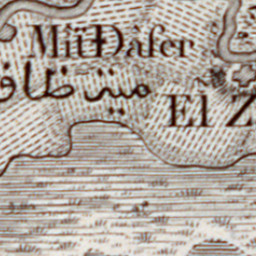 Mit Đàfer
ميت ظاف
El Z